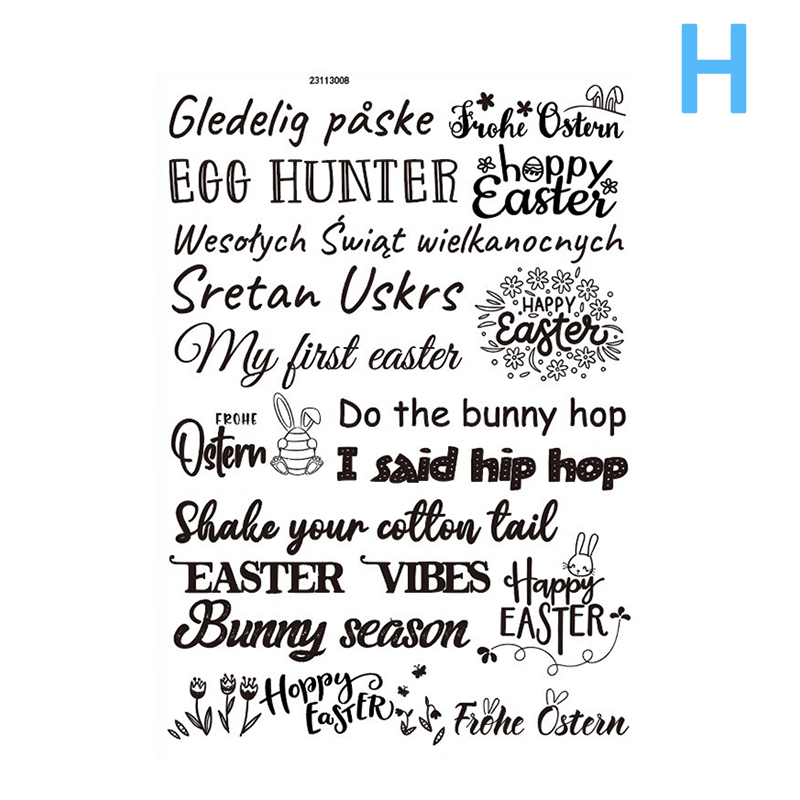 H
23113008
Gledelig påske
Frohe Ostern
EGG HUNTER
hoppy
Easter
Wesołych Świąt wielkanocnych
Sretan Uskrs
HAPPY
Easter
My first easter
FROHE
Ostern
Do the bunny hop
I said hip hop
Shake your cotton tail
EASTER VIBES
Happy
EASTER
Bunny season
Hoppy
EASTER
Frohe Ostern